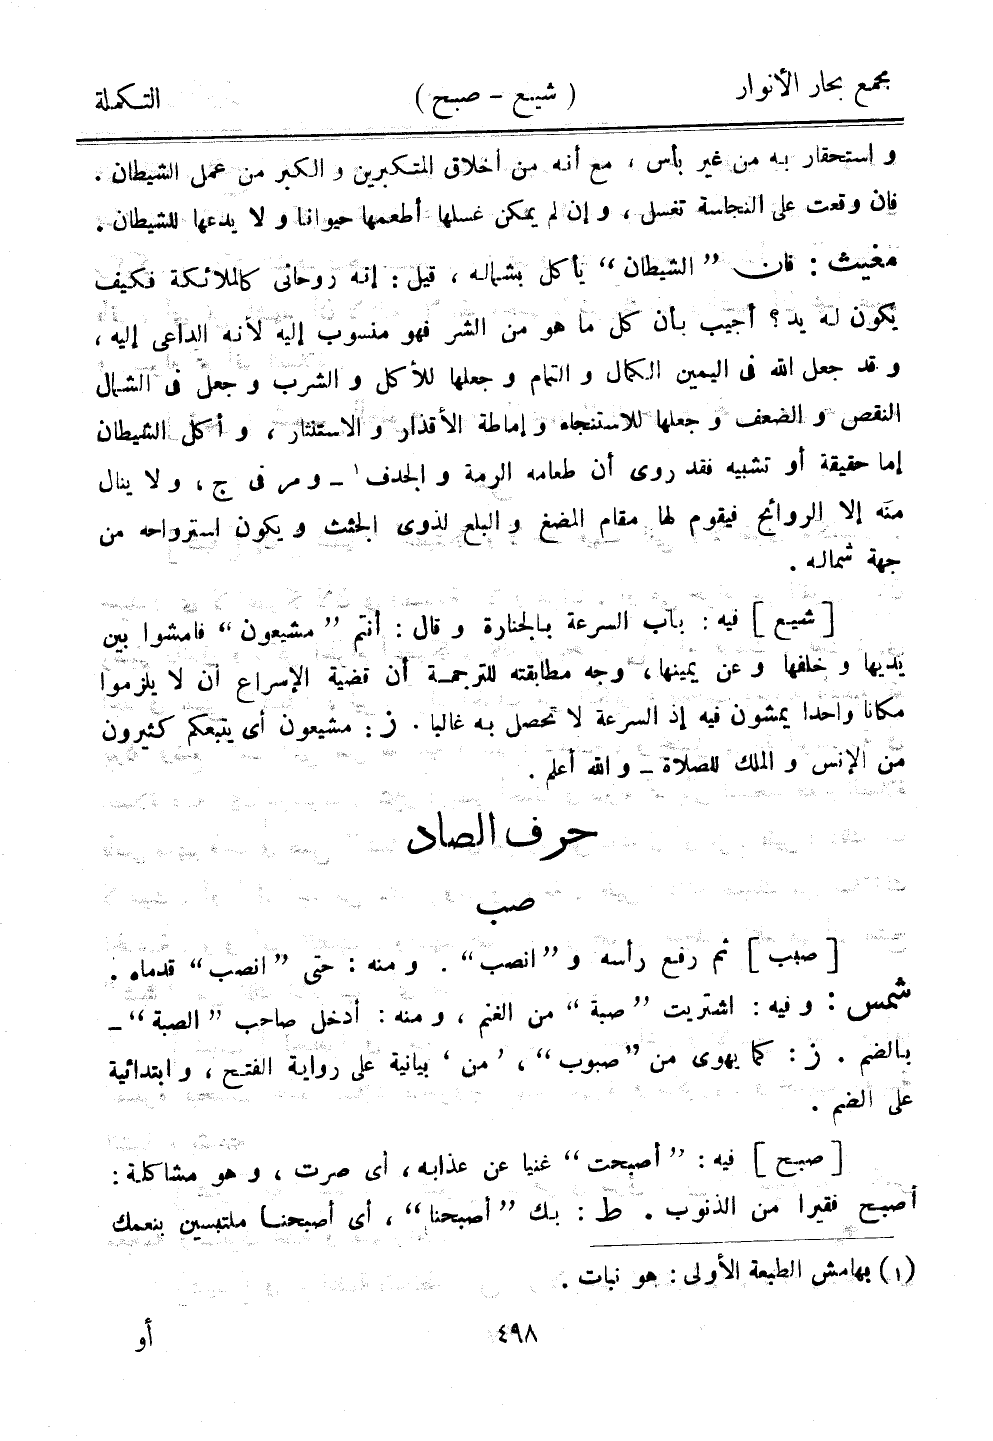 مجمع بحار الأنوار
( شيع - صبح )
التكملة
و استحقار به من غير بأس ، مع أنه من أخلاق المتكبرين و الكبر من عمل الشيطان .
فان وقعت على النجاسة تغسل ، و إن لم يمكن غسلها أطعمها حيوانا و لا يدعها للشيطان .
مغيث : فان ” الشيطان “ يأكل بشماله ، قيل : إنه روحانى كالملائكة فكيف
يكون له يد ؟ أجيب بأن كل ما هو من الشر فهو منسوب إليه لأنه الداعى إليه ،
و قد جعل الله فى اليمين الكمال و التمام و جعلها للأكل و الشرب و جعل فى الشمال
النقص و الضعف و جعلها للاستنجاء و إماطة الأقذار و الاستنثار ، و أكل الشيطان
إما حقيقة أو تشبيه فقد روى أن طعامه الرمة و الجدف ١ ـ و مر فى ج ، و لا ينال
منه إلا الروائح فيقوم لها مقام المضغ و البلع لذوى الجثث و يكون استرواحه من
جهة شماله .
[ شيع ] فيه : باب السرعة بالجنازة و قال : أنتم ” مشيعون “ فامشوا بين
يديها و خلفها و عن يمينها ، وجه مطابقته للترجمة أن قضية الإسراع أن لا يلزموا
مكانا واحدا يمشون فيه إذ السرعة لا تحصل به غالبا . ز : مشيعون أى يتبعكم كثيرون
من الإنس و الملك للصلاة ـ و الله أعلم .
حرف الصاد
صب
[ صبب ] ثم رفع رأسه و ” انصب “ . و منه : حتى ” انصب “ قدماه .
شمس : و فيه : اشتريت ” صبة “ من الغنم ، و منه : أدخل صاحب ” الصبة “ ـ
بالضم . ز : كما يهوى من ” صبوب “ ، ’ من ‘ بيانية على رواية الفتح ، و ابتدائية
على الضم .
[ صبح ] فيه : ” أصبحت “ غنيا عن عذابه ، أى صرت ، و هو مشاكلة :
أصبح فقيرا من الذنوب . ط : بك ” أصبحنا “ ، أى أصبحنا ملتبسين بنعمك
(١) بهامش الطبعة الأولى : هو نبات .
٤٩٨
أو